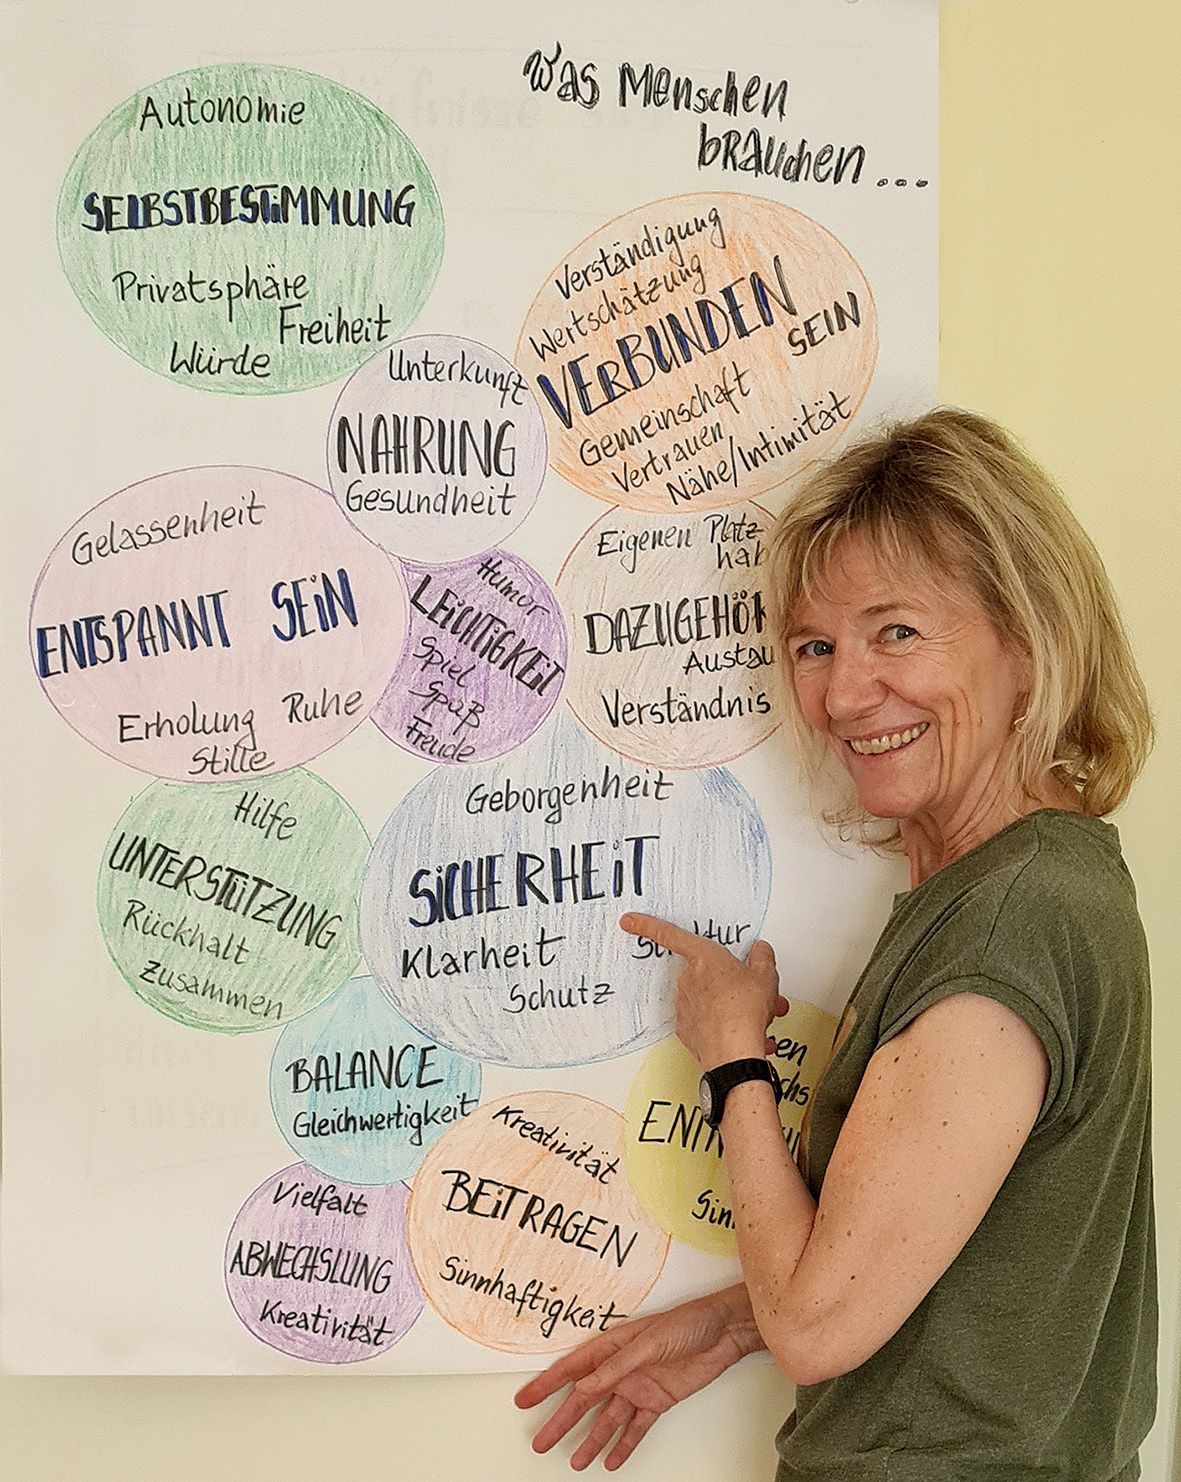 Was Menschen
brauchen...
Autonomie
SELBSTBESTIMMUNG
Privatsphäre
Freiheit
Würde
Verständigung
Wertschätzung
VERBUNDEN
SEIN
Gemeinschaft
Vertrauen
Nähe/Intimität
Unterkunft
NAHRUNG
Gesundheit
Gelassenheit
ENTSPANNT SEIN
Erholung Ruhe
Stille
Humor
LEICHTIGKEIT
Spiel
Spaß
Freude
Eigenen Platz
hab
DAZUGEHÖR
Austau
Verständnis
Hilfe
UNTERSTÜTZUNG
Rückhalt
Zusammen
Geborgenheit
SICHERHEIT
Klarheit
Schutz
BALANCE
Gleichwertigkeit
Kreativität
BEITRAGEN
Sinnhaftigkeit
Vielfalt
ABWECHSLUNG
Kreativität